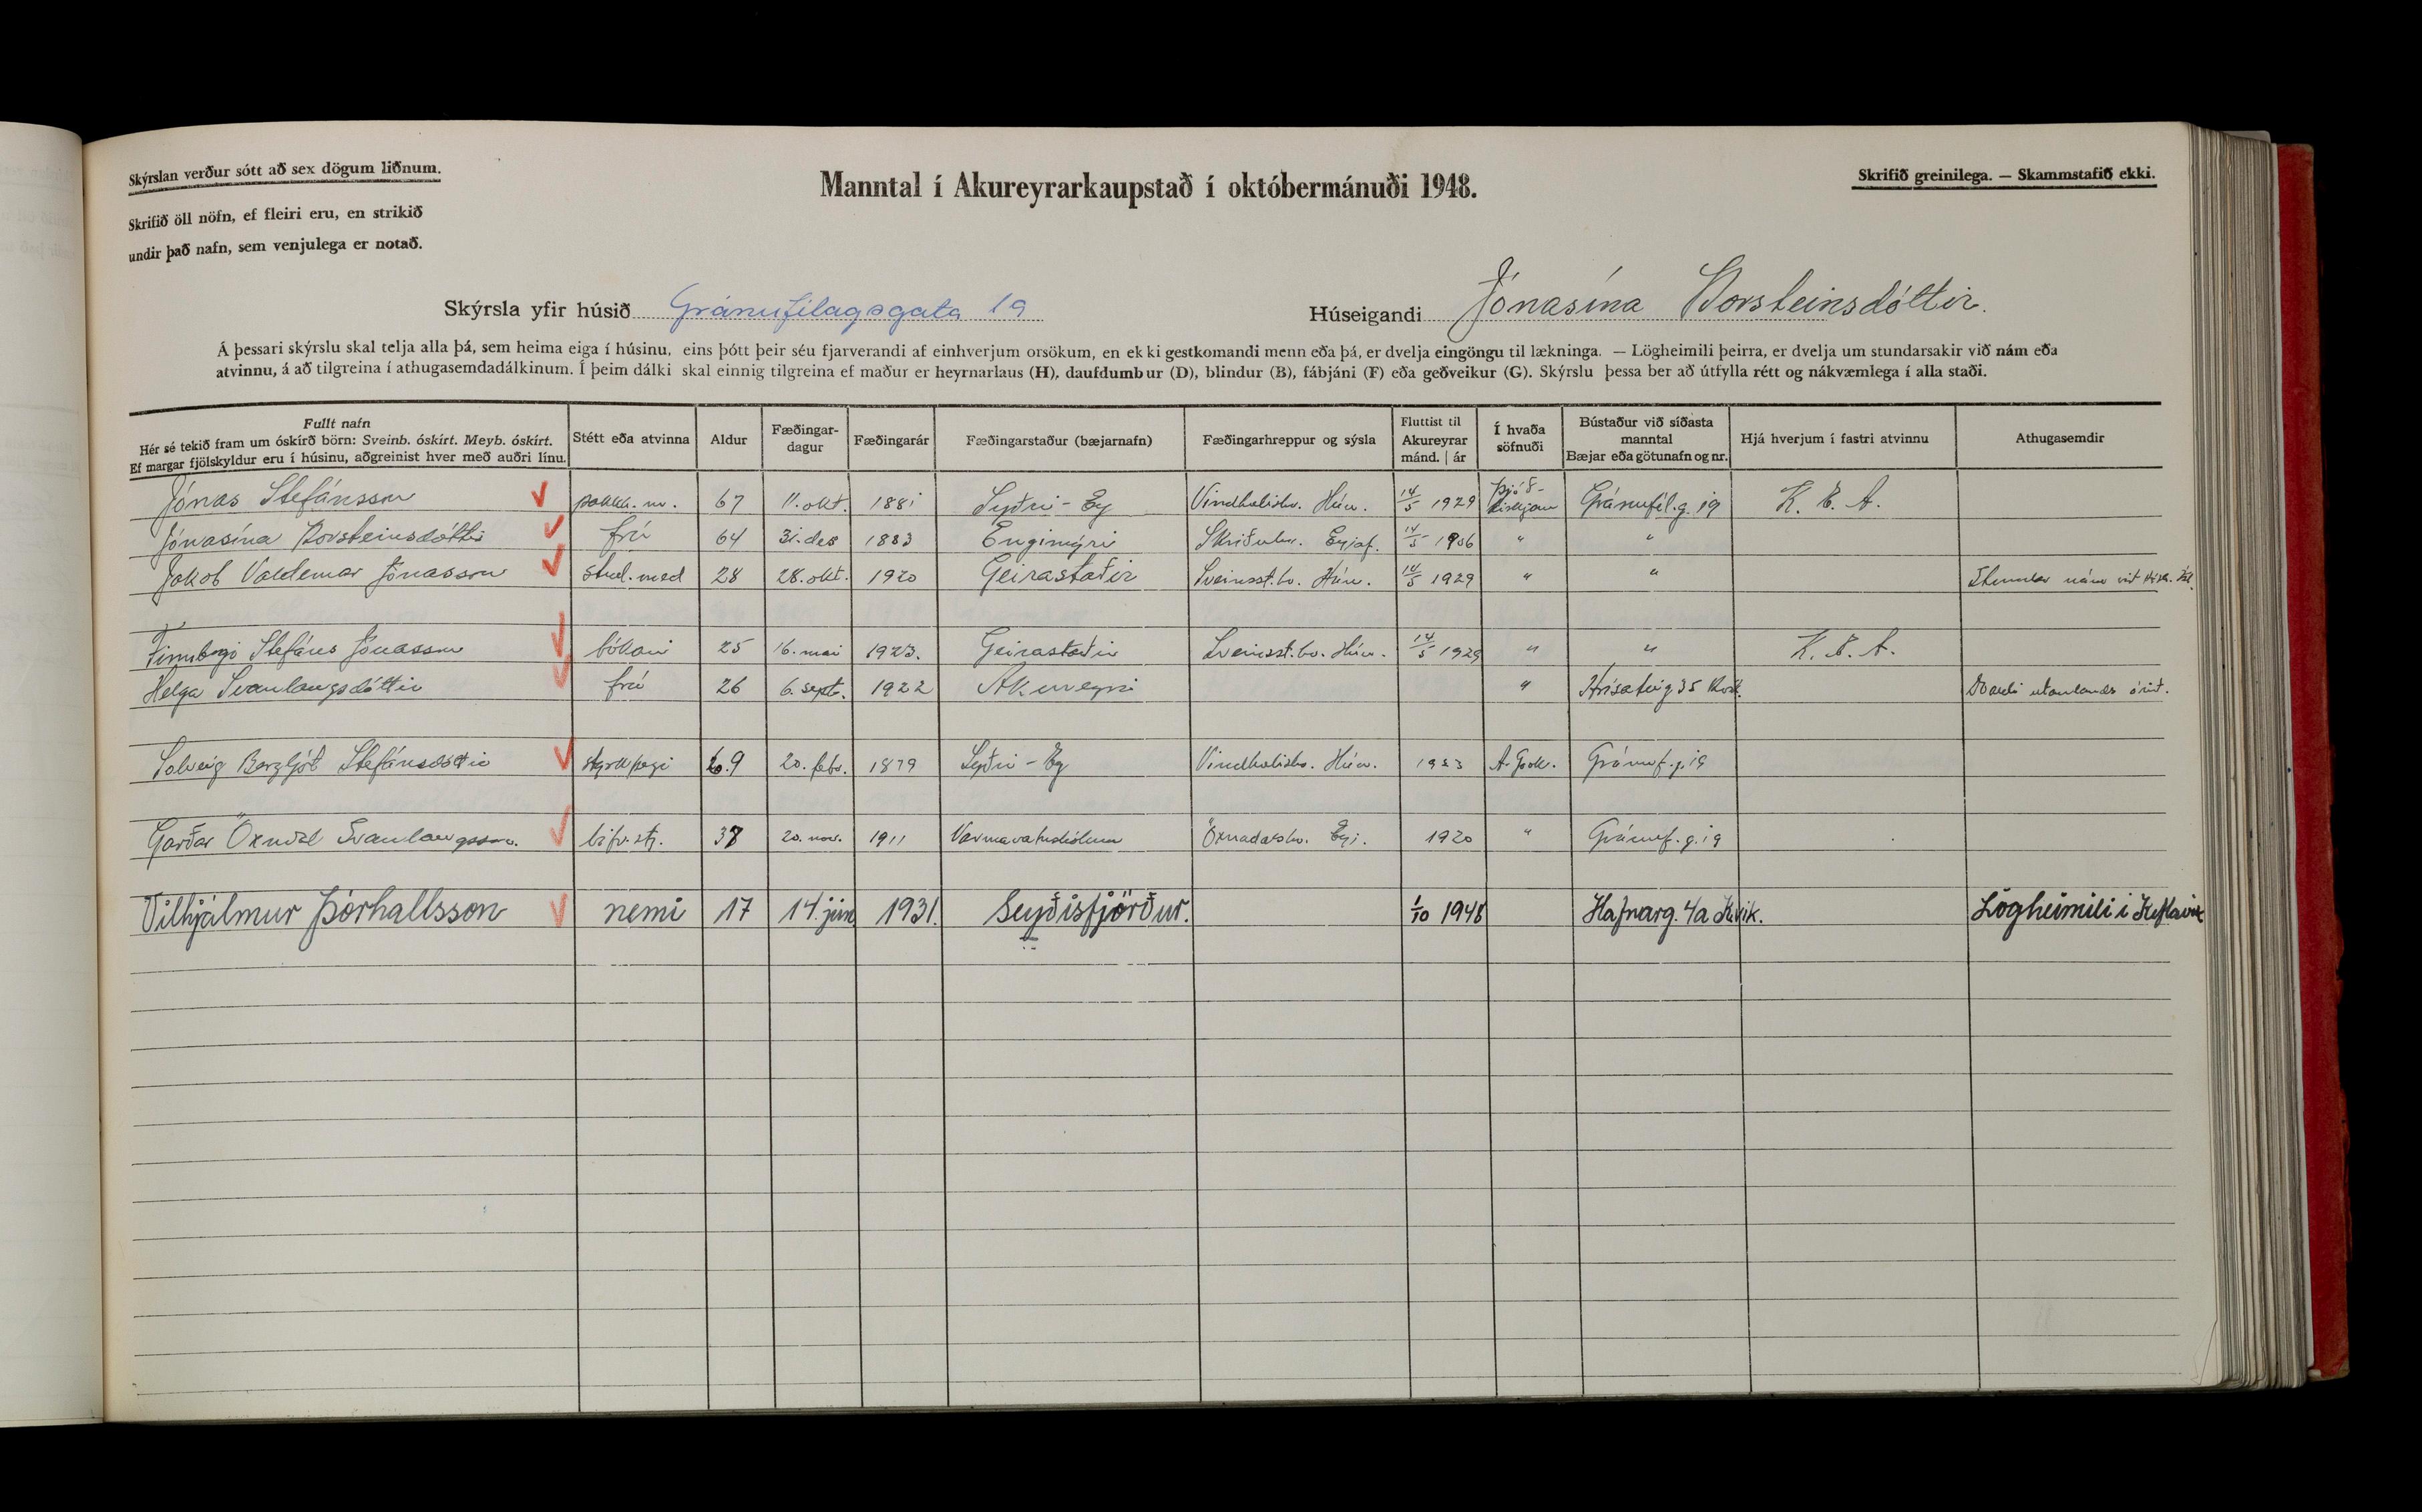 Skýrslan verður sótt að sex dögum liðnum.
Manntal í Akureyrarkaupstað í októbermánuði 1948.
Skrifið greinilega. — Skammstafið ekki.
Skrifið öll nöfn, ef fleiri eru, en strikið
undir það nafn, sem venjulega er notað.
Skýrsla yfir húsið Gránufélagsgata 19
Húseigandi Jónasína Þorsteinsdóttir.
Á þessari skýrslu skal telja alla þá, sem heima eiga í húsinu, eins þótt þeir séu fjarverandi af einhverjum orsökum, en ekki gestkomandi menn eða þá, er dvelja eingöngu til lækninga. — Lögheimili þeirra, er dvelja um stundarsakir við nám eða
atvinnu, á að tilgreina í athugasemdadálkinum. Í þeim dálki skal einnig tilgreina ef maður er heyrnarlaus (H), daufdumbur (D), blindur (B), fábjáni (F) eða geðveikur (G). Skýrslu þessa ber að útfylla rétt og nákvæmlega í alla staði.
Fullt nafn
Hér sé tekið fram um óskírð börn: Sveinb. óskírt. Meyb. óskírt.
Ef margar fjölskyldur eru í húsinu, aðgreinist hver með auðri línu.
Stétt eða atvinna
Aldur
Fæðingar-
dagur
Fæðingarár
Fæðingarstaður (bæjarnafn)
Fæðingarhreppur og sýsla
Fluttist til
Akureyrar
mánd. | ár
Í hvaða
söfnuði
Bústaður við síðasta
manntal
Bæjar eða götunafn og nr.
Hjá hverjum í fastri atvinnu
Athugasemdir
Jónas Stefánsson pakkh.m. 67 11. okt. 1881 Syðri-Ey Vindhælishr. Hún. 14/5 1929 Þjóð-kirkjan Gránufél.g. 19 K. E. A.
Jónasína Þorsteinsdóttir frú 64 31. des 1883 Engimýri Skriðuhr. Eyjaf. 14/5 " "
Jakob Valdemar Jónasson stud. med 28 28. okt. 1920 Geirastaðir Sveinsst.hr. Hún. 14/5 1929 " " Stundar nám við
Finnbogi Stefáns Jónasson bókari 25 16. mai 1923. Geirastaðir Sveinsst.hr. Hún. 14/5 1929 " " K. E. A.
Helga Svanlaugsdóttir frú 26 6. sept. 1922 Akureyri " Hrísateig 35 Dvaldi utanlands
Solveig Bergljót Stefánsdóttir styrkþegi 69 20. febr. 1879 Syðri-Ey Vindhælishr. Hún. Gránuf.g. 19
Garðar Öxndal Svanlaugsson. bifr.stj. 37 20. nov. 1911 Varmavatnshólum Öxnadalshr. Eyj. 1920 " Gránuf.g. 19
Vilhjálmur Þórhallsson nemi 17 14. jún. 1931. Seyðisfjörður. 1/10 1948 Hafnarg. 4a Kvik. Lögheimili í Keflavík